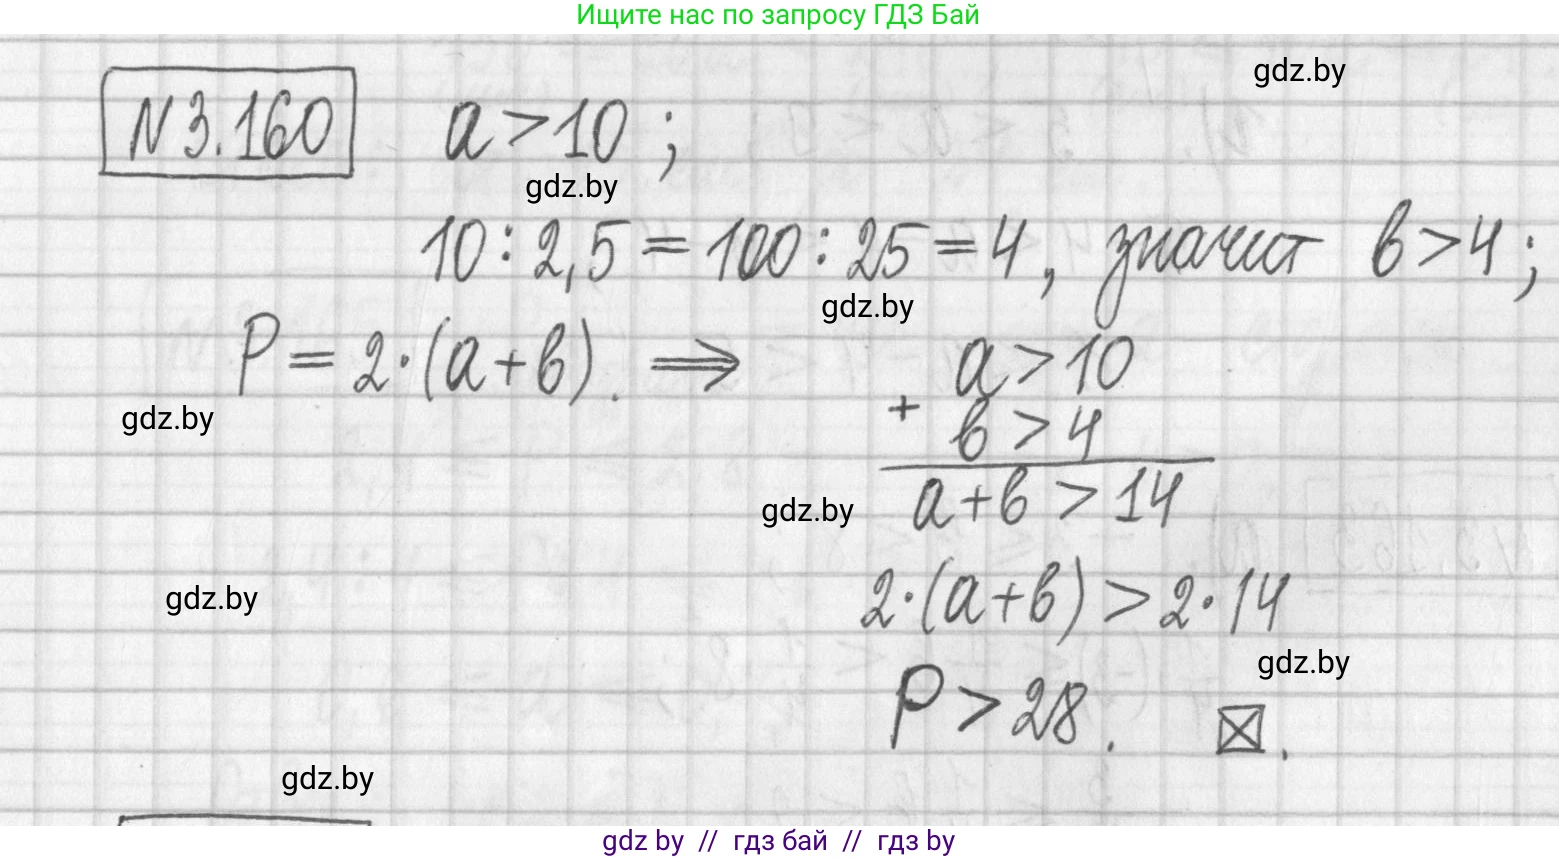 Ищите нас по запросу ГДЗ Бай
gdz.by
N 3.160 a > 10 ;
gdz.by
10 : 2,5 = 100 : 25 = 4, значит в > 4 ;
gdz.by
P = 2·(a+в). ⟹ a > 10
gdz.by
+ в > 4
a+в > 14
gdz.by
2·(a+в) > 2·14
gdz.by
gdz.by
P > 28. ☒.
gdz.by
gdz by // гдз бай // гдз by